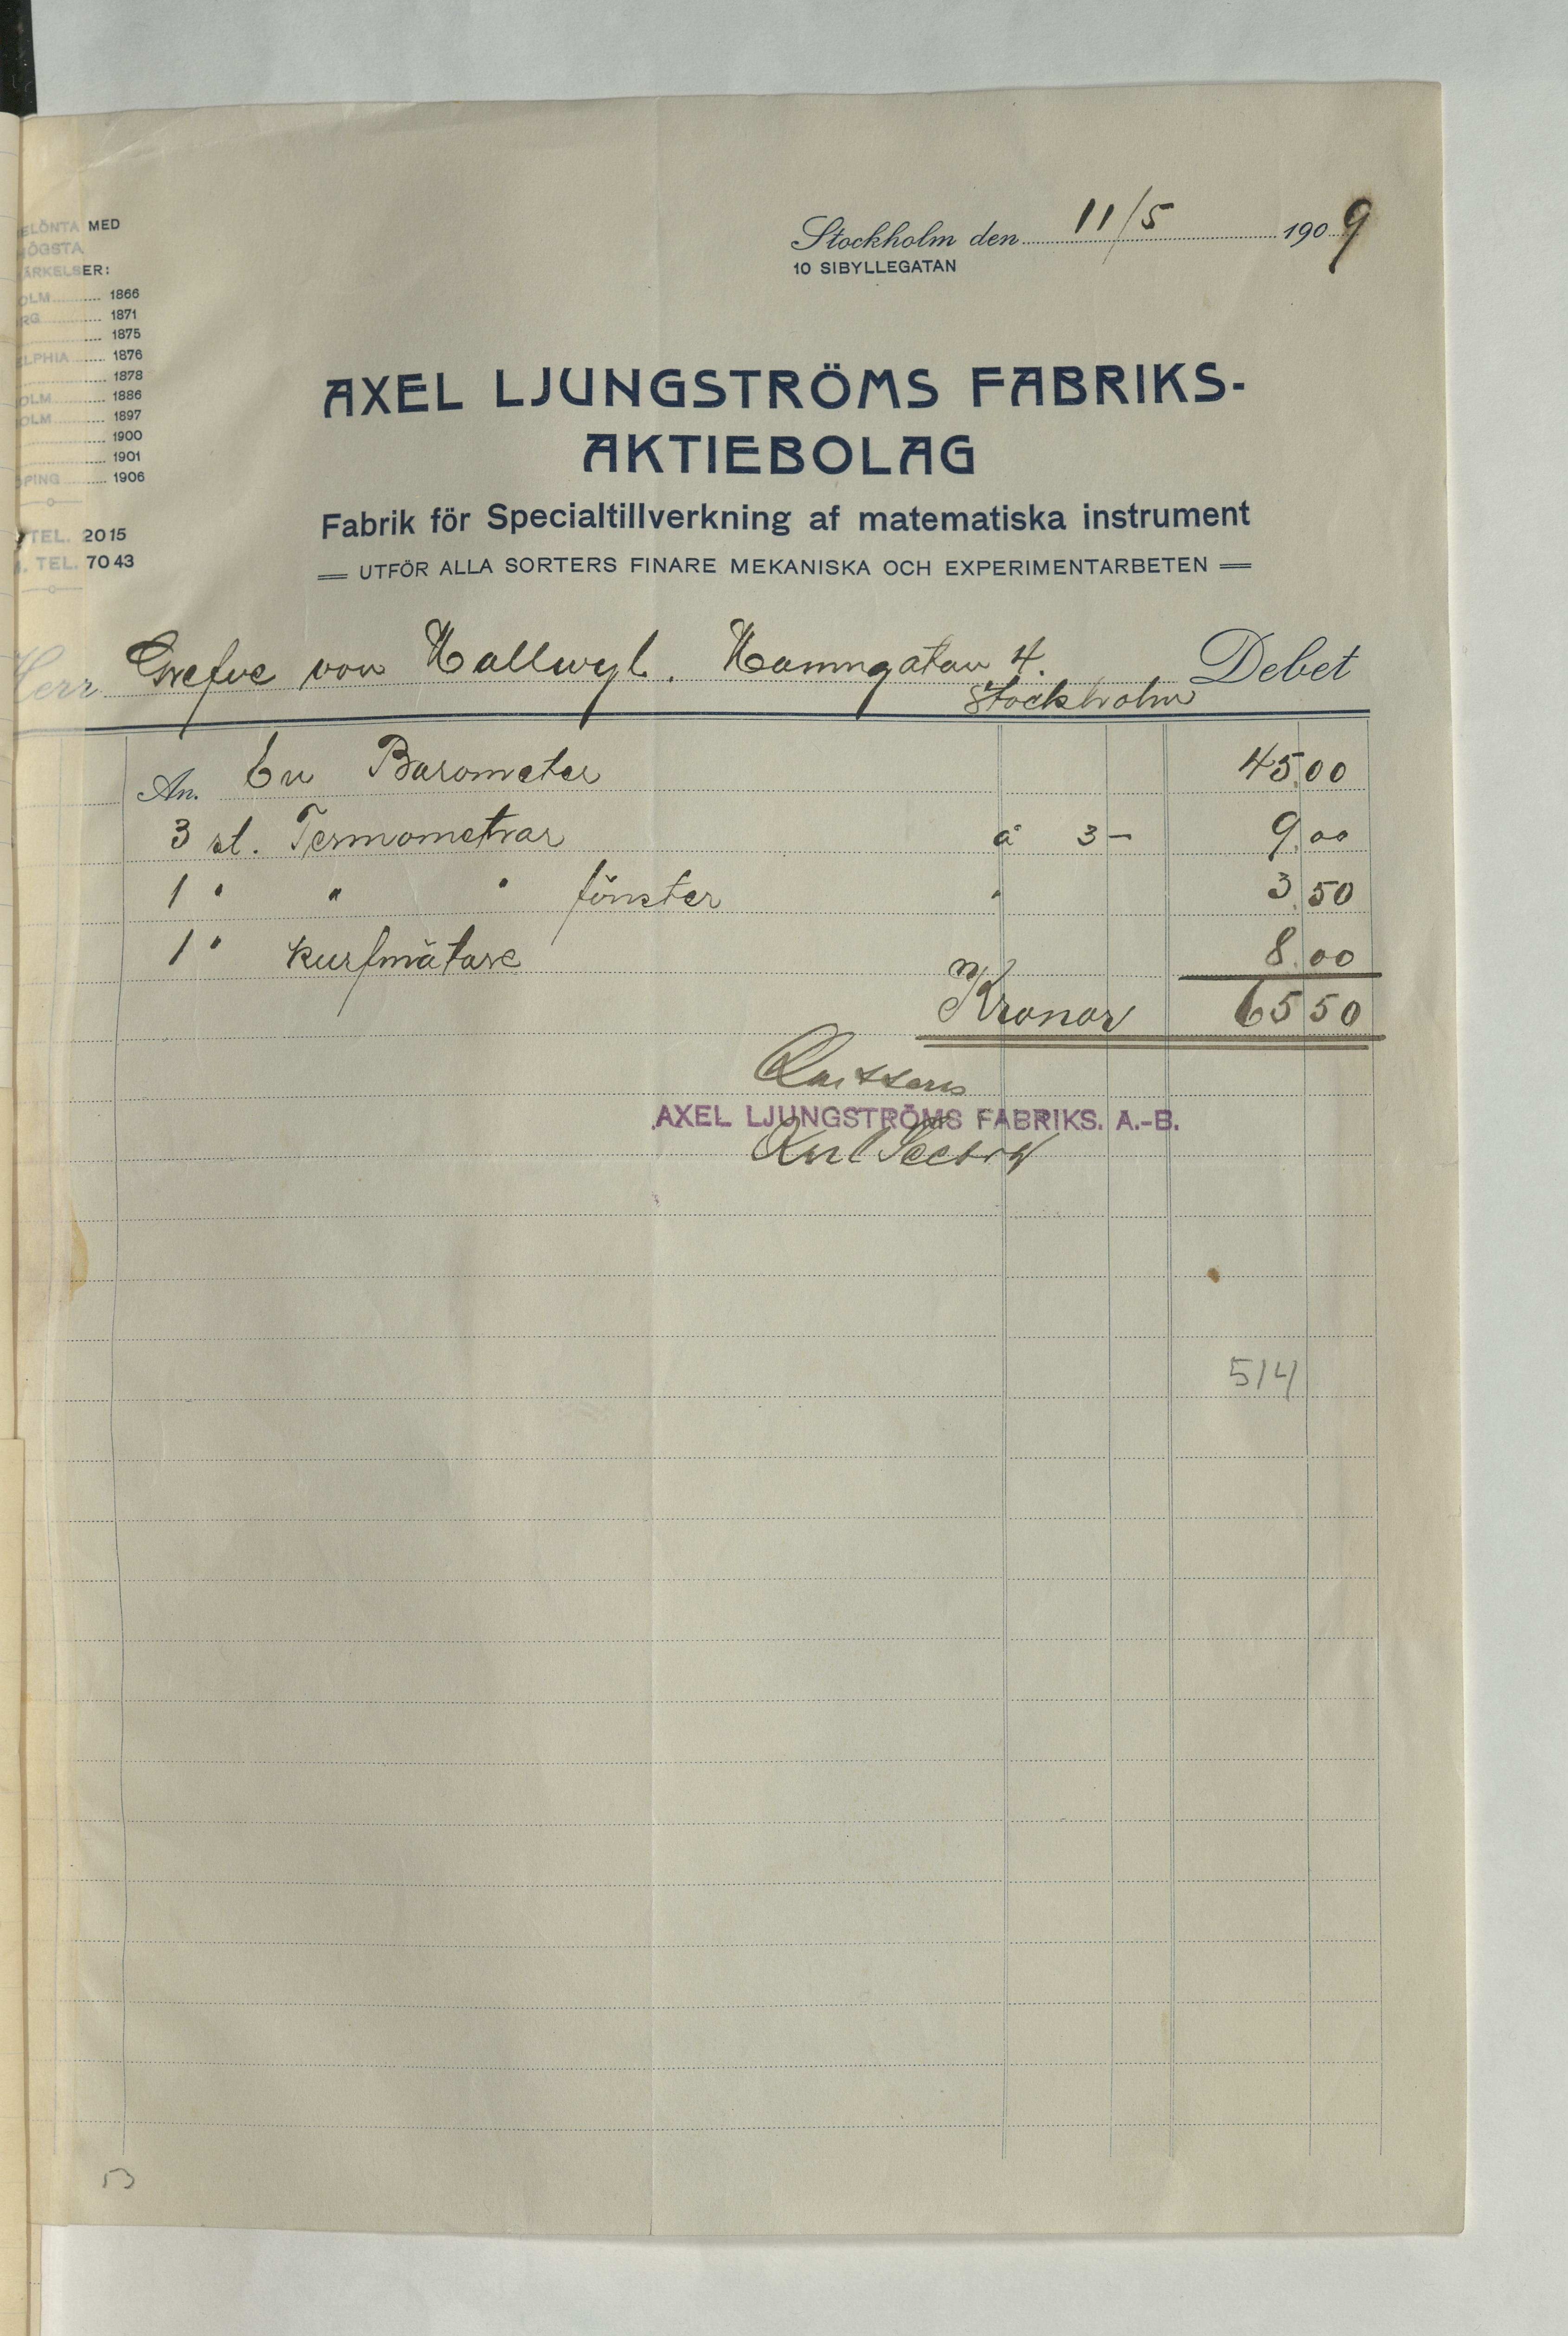 Stockholm den 11/5 1909
10 SIBYLLEGATAN
ELÖNTA MED
HÖGSTA
ÄRKELSER:
OLM 1866
RG 1871
1875
ELPHIA 1876
1878
OLM 1886
OLM 1897
1900
1901
PING 1906
TEL. 2015
. TEL. 7043
AXEL LJUNGSTRÖMS FABRIKS-
AKTIEBOLAG
Fabrik för Specialtillverkning af matematiska instrument
UTFÖR ALLA SORTERS FINARE MEKANISKA OCH EXPERIMENTARBETEN
Herr Grefve von Hallwyl. Hamngatan 4. Debet
Stockholm
An. En Barometer 45.00
3 st. Termometrar à 3- 9.00
1 " " " fönster " 3.50
1 " kurfmätare 8.00
Kronor 65 50
Quitteras
AXEL LJUNGSTRÖMS FABRIKS. A.-B.
514